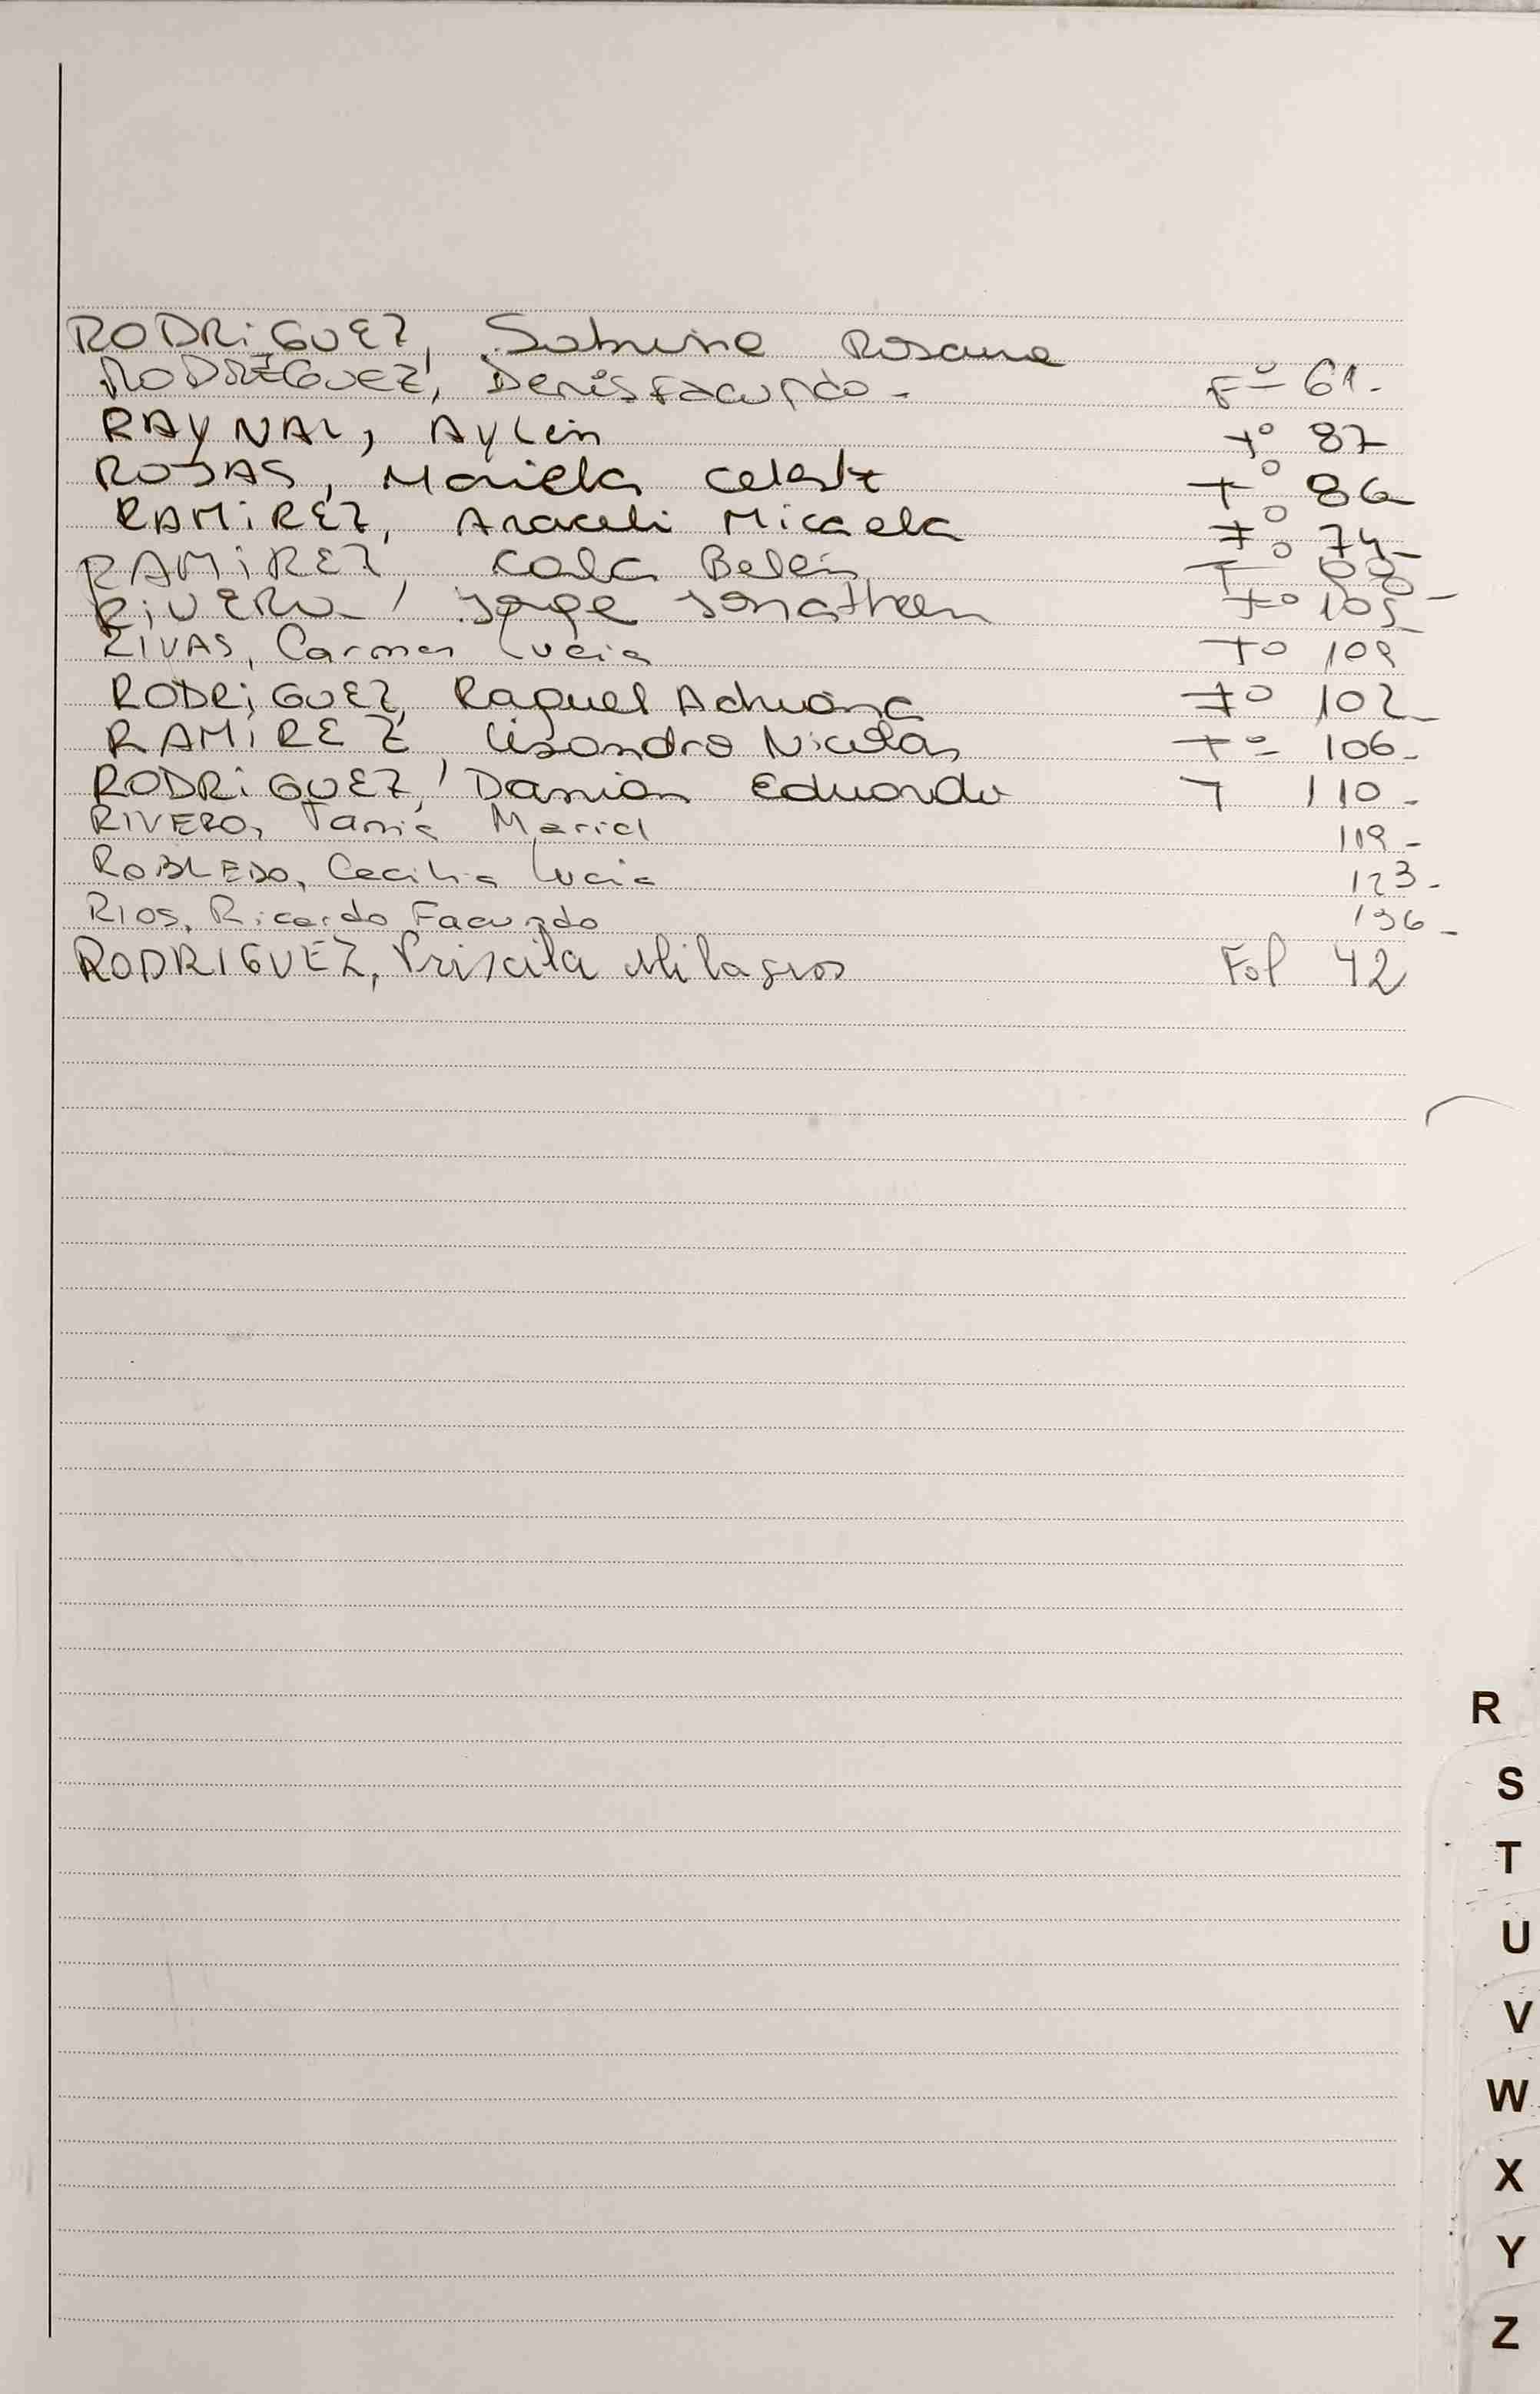 RODRiGUEZ, Sabrina Rosana
RODRÍGUEZ, Denis Facundo - Fº 61.-
RAYNAL, Aylen Fº 87
ROJAS, Mariela Celeste Fº 86
RAMiREZ, Araceli Micaela Fº 74-
RAMiREZ, Carla Belén Fº
RiVERO, Jorge Jonathan Fº 105-
RIVAS, Carmen Lucia Fº 109
RODRiGUEZ, Raquel Adriana Fº 102-
RAMiREZ, Lisandro Nicolás Fº 106-
RODRiGUEZ, Damian Eduardo F 110-
RIVERO, Tania Mariel 119-
ROBLEDO, Cecilia Lucia 123-
RIOS, Ricardo Facundo 136-
RODRIGUEZ, Priscila Milagros Fol 42
R
S
T
U
V
W
X
Y
Z